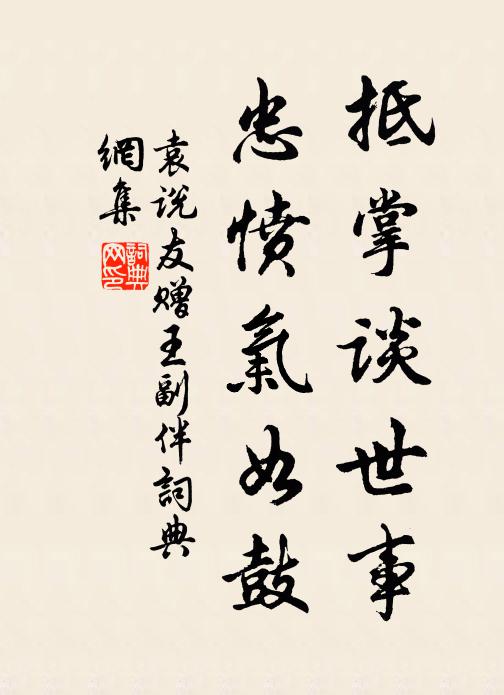 抵掌談世事
忠憤氣如鼓
袁说友赠王副伴詞典
網集
詞典
网印